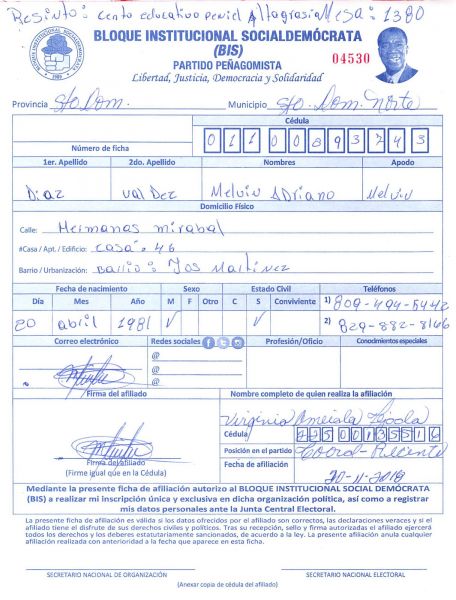 Resinto: Cento educativo peniel Altagrasia Mesa: 1380
BLOQUE INSTITUCIONAL SOCIALDEMÓCRATA
(BIS)
PARTIDO PEÑAGOMISTA
04530
Libertad, Justicia, Democracia y Solidaridad
BLOQUE INSTITUCIONAL SOCIALDEMOCRATA
Provincia Sto Dom. Municipio Sto. Dom. Norte
Cédula
Número de ficha 0 1 1 0 0 8 9 3 7 4 3
1er. Apellido 2do. Apellido Nombres Apodo
Diaz Valdez Melvin Adriano Melvin
Domicilio Físico
Calle: Hermanas mirabal
#Casa / Apt. / Edificio: Casa: 46
Barrio / Urbanización: Barrio: Jos Martinez
Fecha de nacimiento Sexo Estado Civil Teléfonos
Día Mes Año M F Otro C S Conviviente 1) 809-494-5442
20 abril 1981 √ √ 2) 829-882-8146
Correo electrónico Redes sociales Profesión/Oficio Conocimientos especiales
@
@
@
Firma del afiliado Nombre completo de quien realiza la afiliación
Virginia
Cédula 2 2 5 0 0 1 3 5 5 1 6
Posición en el partido
Firma del afiliado
(Firme igual que en la Cédula)
Fecha de afiliación 20-11-2018
Mediante la presente ficha de afiliación autorizo al BLOQUE INSTITUCIONAL SOCIAL DEMÓCRATA
(BIS) a realizar mi inscripción única y exclusiva en dicha organización política, así como a registrar
mis datos personales ante la Junta Central Electoral.
La presente ficha de afiliación es válida si los datos ofrecidos por el afiliado son correctos, las declaraciones veraces y si el
afiliado tiene el disfrute de sus derechos civiles y políticos. Tras su recepción, sello y firma autorizadas el afiliado ejercerá
todos los derechos y los deberes estatutariamente sancionados, de acuerdo a la ley. La presente afiliación anula cualquier
afiliación realizada con anterioridad a la fecha que aparece en esta ficha.
SECRETARIO NACIONAL DE ORGANIZACIÓN SECRETARIO NACIONAL ELECTORAL
(Anexar copia de cédula del afiliado)